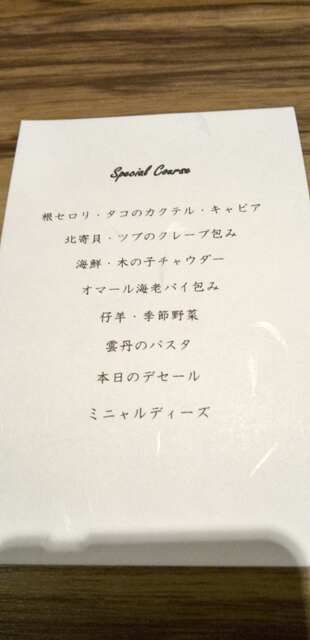 Special Course
根セロリ・タコのカクテル・キャビア
北寄貝・ツブのクレープ包み
海鮮・木の子チャウダー
オマール海老パイ包み
仔羊・季節野菜
雲丹のパスタ
本日のデセール
ミニャルディーズ